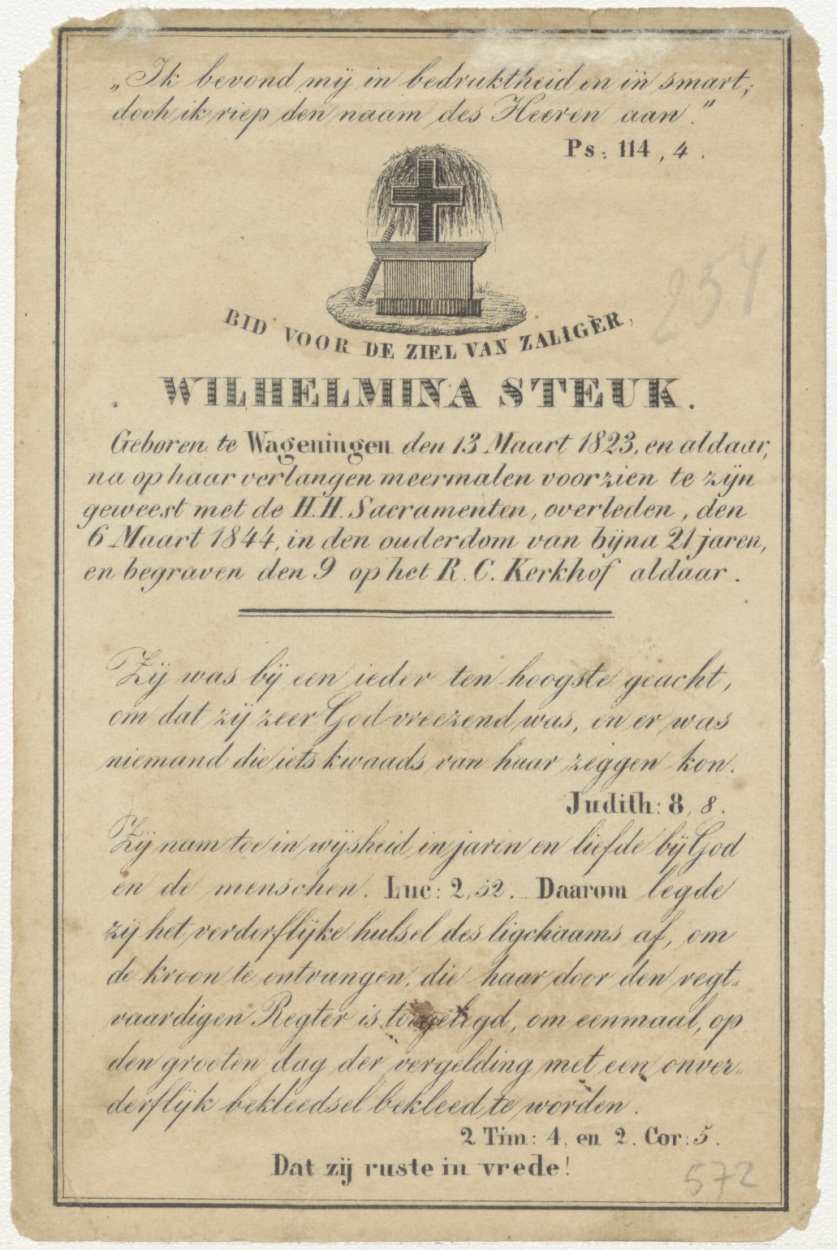 „Ik bevond mij in bedruktheid en in smart;
doch ik riep den naam des Heeren aan."
Ps: 114, 4.
254
BID VOOR DE ZIEL VAN ZALIGER,
WILHELMINA STEUK.
Geboren te Wageningen den 13 Maart 1823, en aldaar,
na op haar verlangen meermalen voorzien te zijn
geweest met de H.H. Sacramenten, overleden, den
6 Maart 1844, in den ouderdom van bijna 21 jaren,
en begraven den 9 op het R. C. Kerkhof aldaar.
Zij was bij een ieder ten hoogste geacht,
om dat zij zeer God vreezend was, en er was
niemand die iets kwaads van haar zeggen kon.
Judith: 8, 8.
Zij nam toe in wijsheid in jaren en liefde bij God
en de menschen. Luc: 2, 52. Daarom legde
zij het verderflijke hulsel des ligchaams af, om
de kroon te ontvangen, die haar door den regt-
vaardigen Regter is toegelegd, om eenmaal, op
den grooten dag der vergelding met een onver-
derflijk bekleedsel bekleed te worden.
2 Tim: 4, en 2. Cor: 5.
Dat zij ruste in vrede!
572